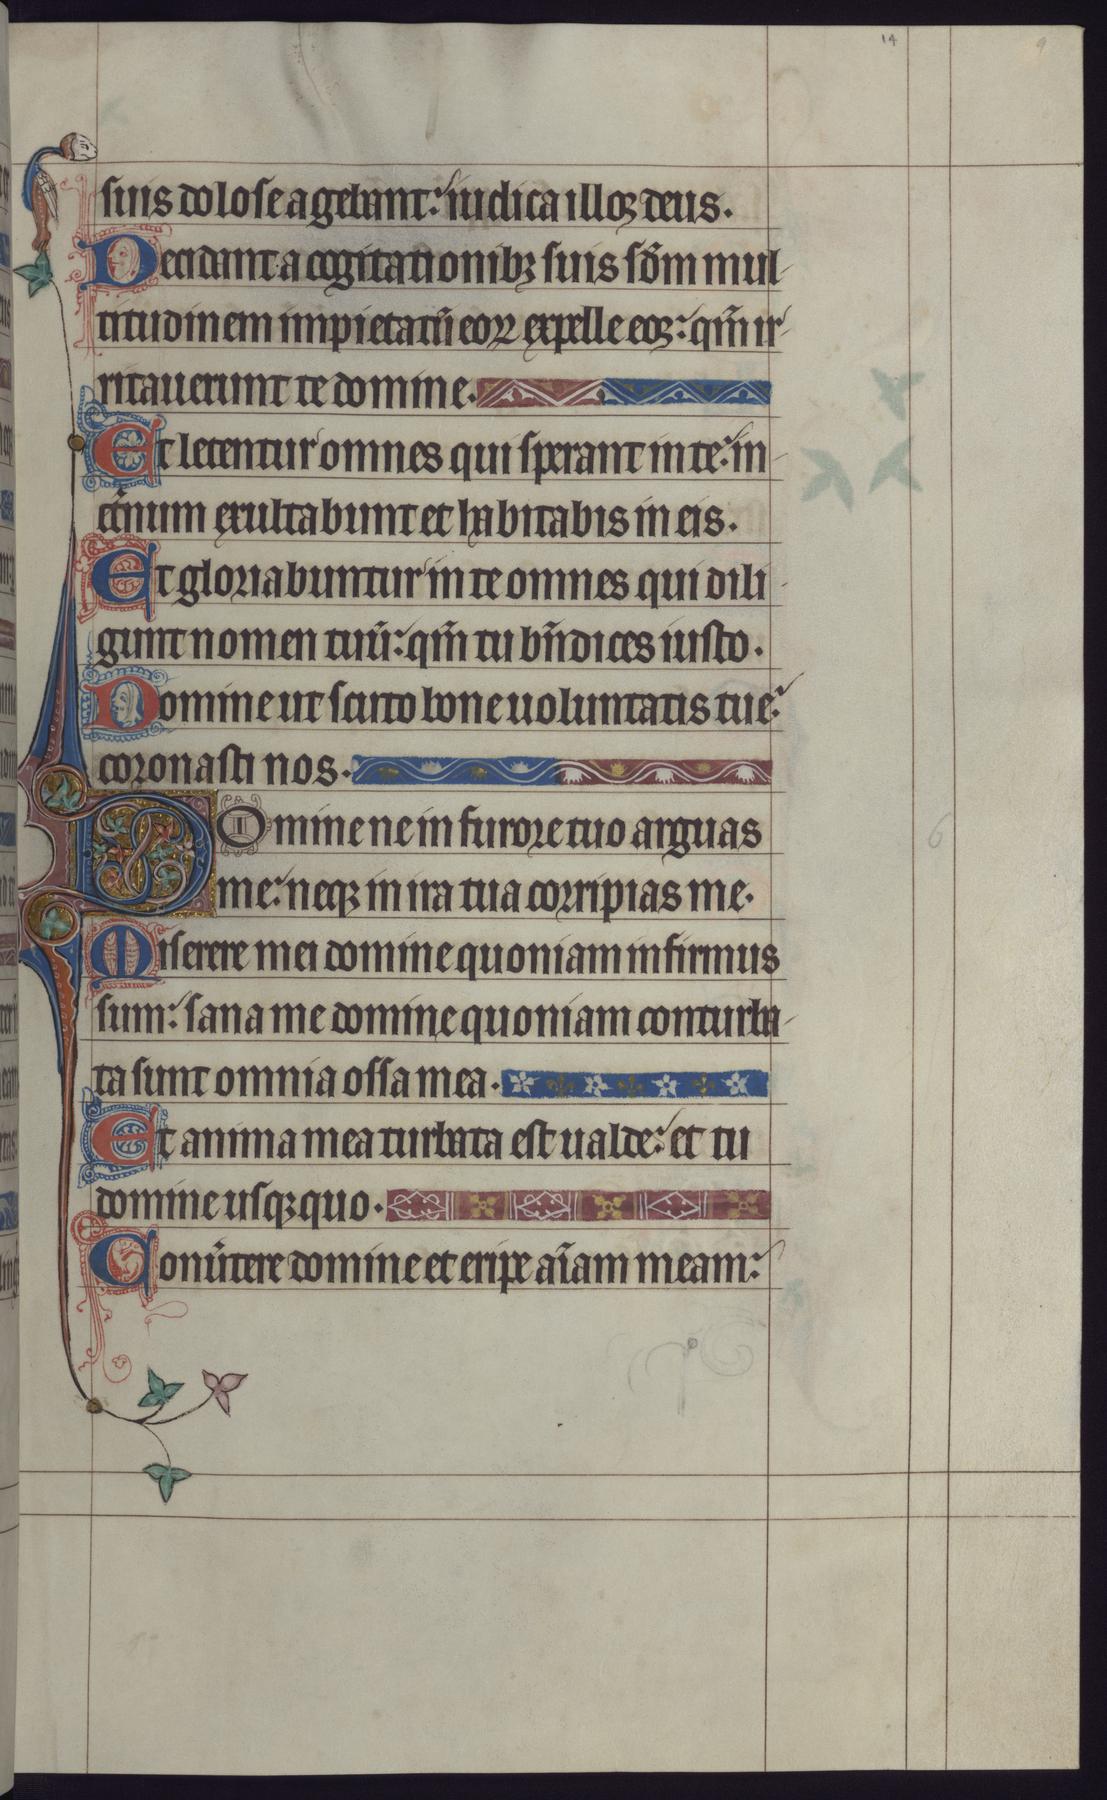 14 9
suis dolose agebant: iudica illoꝝ deus.
Decidant a cogitationibꝫ suis sc̄dm mul
titudinem impietatū eoꝝ expelle eos: qm̄ ir
ritauerunt te domine.
Et letentur omnes qui sperant in te: in
et̄num exultabunt et habitabis in eis.
Et gloriabuntur in te omnes qui dili
gunt nomen tuū: qm̄ tu bn̄dices iusto.
Domine ut scuto bone uoluntatis tue:
coronasti nos.
Domine ne in furore tuo arguas
me: neqꝫ in ira tua corripias me.
6
Miserere mei domine quoniam infirmus
sum: sana me domine quoniam conturba
ta sunt omnia ossa mea.
Et anima mea turbata est ualde: et tu
domine usqꝫ quo.
Conu̾tere domine et eripe aīam meam: